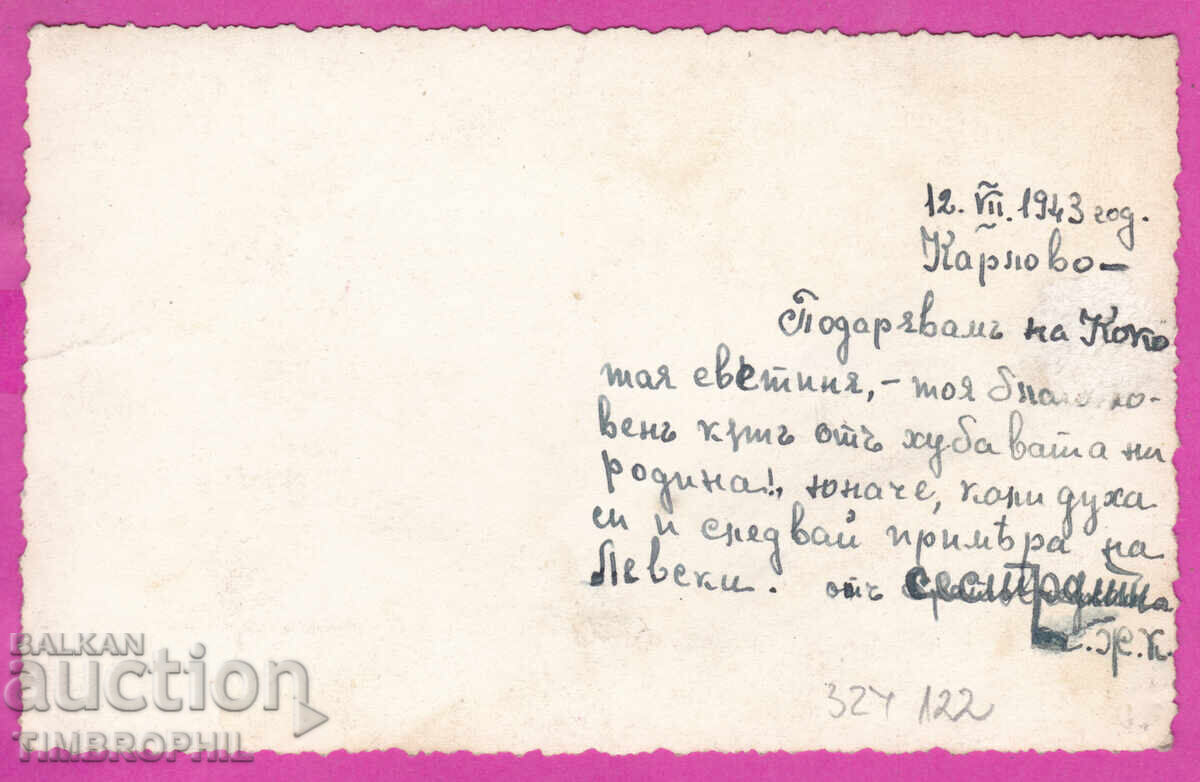 12. VII. 1943 год.
Карлово –
Подарявамъ на Коко
тая светиня, – тоя
венъ кѫтъ отъ хубавата ни
родина!, юначе, кали духа
си и следвай примѣра на
Левски. отъ
Ж. К.
324 122
BALKAN
auction
TIMBROPHIL